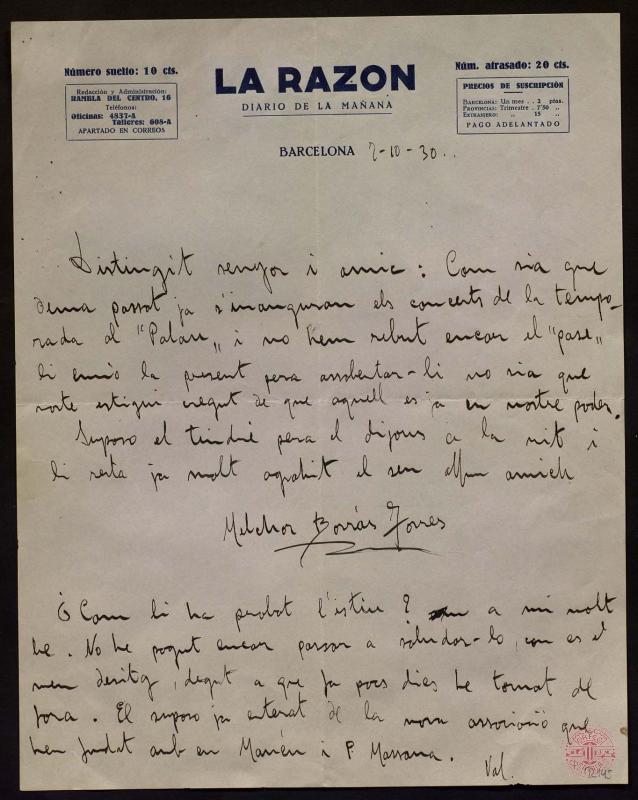 Número suelto: 10 cts.
Núm. atrasado: 20 cts.
LA RAZON
DIARIO DE LA MAÑANA
Redacción y Administración:
RAMBLA DEL CENTRO, 16
Teléfonos:
Oficinas: 4837-A
Talleres: 608-A
APARTADO EN CORREOS
PRECIOS DE SUSCRIPCIÓN
BARCELONA: Un mes . . 2 ptas.
PROVINCIAS: Trimestre . 7'50 „
EXTRANJERO: „ 15 „
PAGO ADELANTADO
BARCELONA 7-10-30..
Distingit senyor i amic: Com sia que
dema passat ja s'inauguran els concerts de la tempo-
rada al "Palau„ i no hem rebut encar el "pase„
li envio la present pera assabentar-li no sia que
voste estigui cregut de que aquell es ja en nostre poder.
Suposo el tindré pera el dijous a la nit i
li resta ja molt agrahit el seu affm amich
Melchor Borrás Torres
¿Com li ha probat l'istiu? a mi molt
be. No he pogut encar passar a saludar-lo, com es el
meu desitg, degut a que fa pocs dies he tornat de
fora. El suposo ja enterat de la nova associació que
hem fundat amb en Manén i P. Massana.
Val.
12145